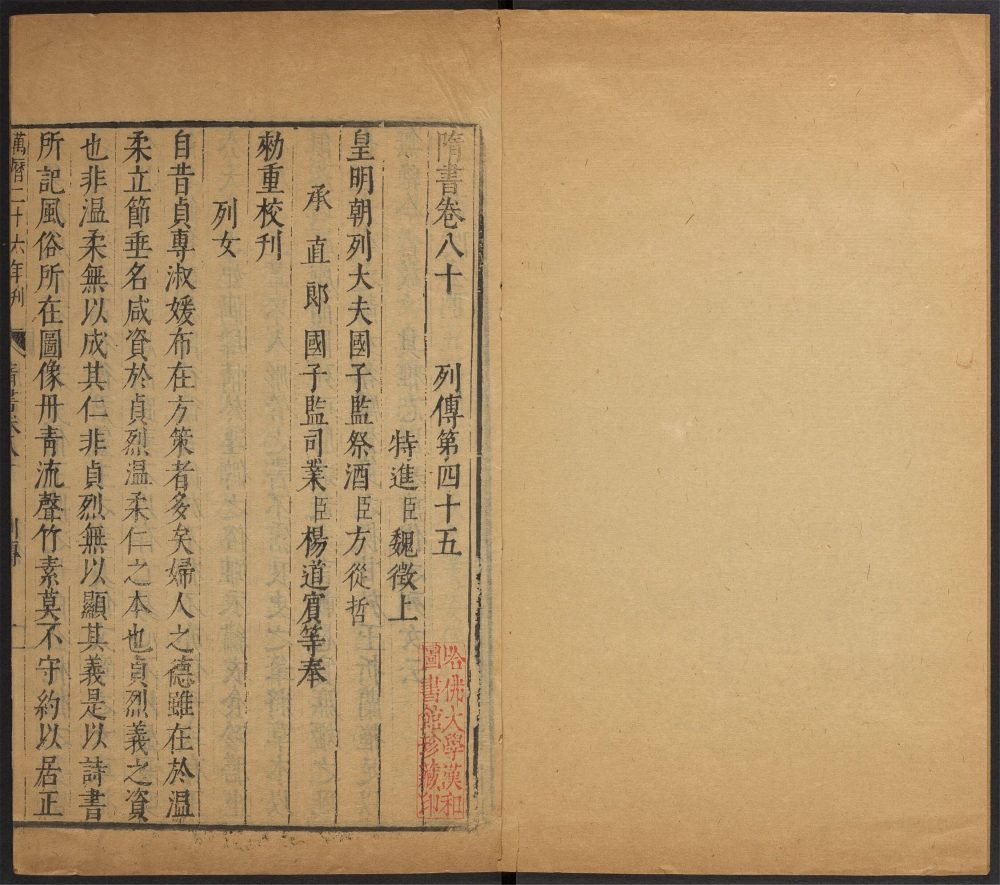 隋書卷八十　列傳第四十五
特進臣魏徵上
皇明朝列大夫國子監祭酒臣方從哲
承直郎國子監司業臣楊道賓等奉
勑重校刊
列女
自昔貞專淑媛布在方策者多矣婦人之德雖在於温
柔立節垂名咸資於貞烈温柔仁之本也貞烈義之資
也非温柔無以成其仁非貞烈無以顯其義是以詩書
所記風俗所在圖像丹青流聲竹素莫不守約以居正
萬曆二十六年刊
哈佛大學漢和
圖書館珍藏印